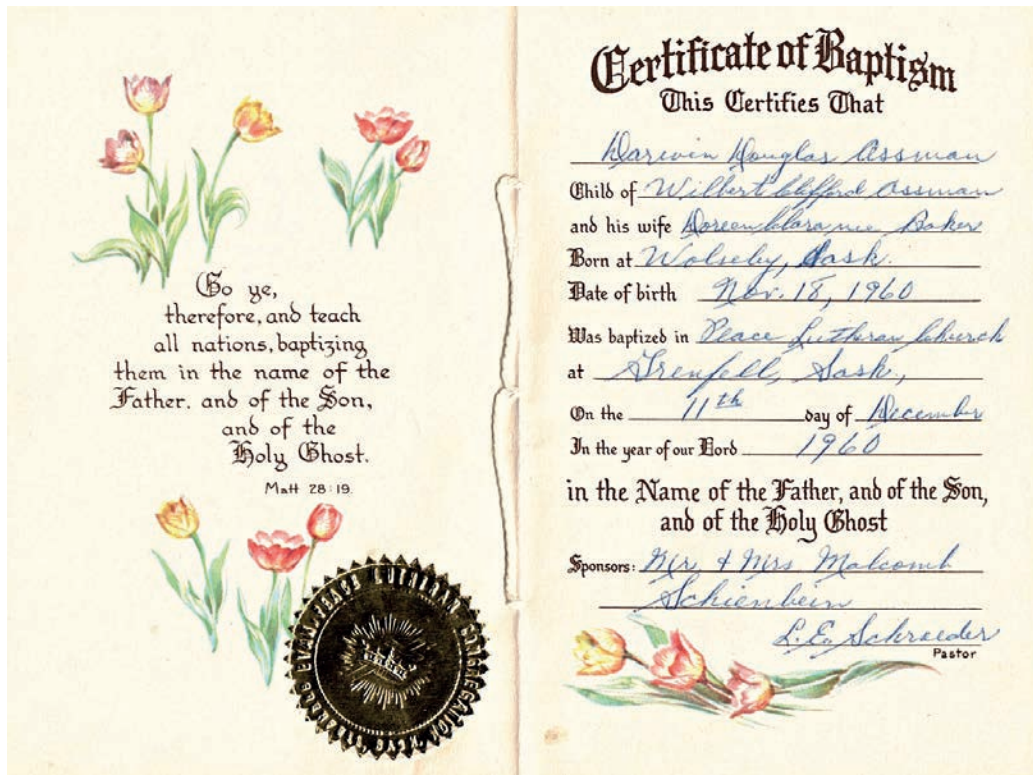 Go ye,
therefore, and teach
all nations, baptizing
them in the name of the
Father. and of the Son,
and of the
Holy Ghost.
Matt 28:19.
EVAN. PEACE LUTHERAN CONGREGATION
Certificate of Baptism
This Certifies That
Darwin Douglas Assman
Child of Wilbert Clifford Assman
and his wife Doreen Baker
Born at Wolseley, Sask.
Date of birth Nov. 18, 1960
Was baptized in Peace Lutheran Church
at Grenfell, Sask,
On the 11th day of December
In the year of our Lord 1960
in the Name of the Father, and of the Son,
and of the Holy Ghost
Sponsors: Mr. & Mrs. Malcomb
Schienbein
L.E. Schroeder
Pastor